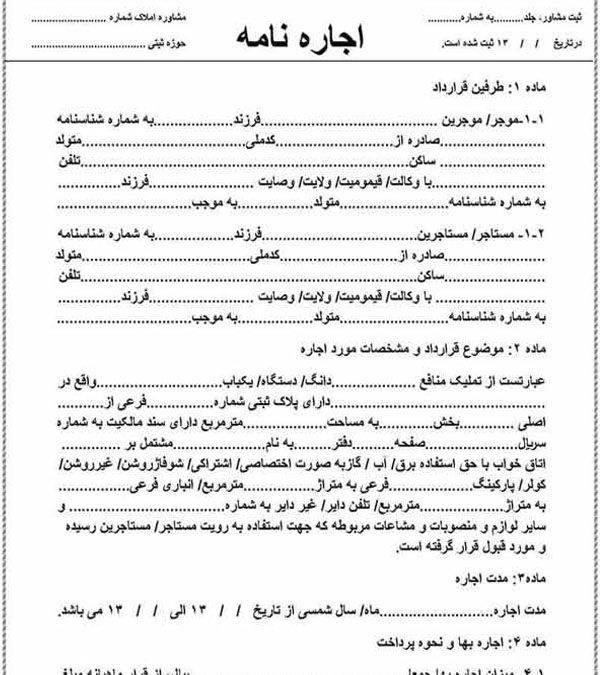 ثبت مشاور، جلد..........به شماره...........
مشاوره املاک شماره ........................
درتاریخ / / ۱۳ ثبت شده است.
اجاره نامه
حوزه ثبتی .....................................
ماده ۱: طرفین قرارداد
۱-۱-موجر/ موجرین ........................................فرزند..................به شماره شناسنامه
........................صادره از...........................کدملی......................................متولد
........................ ساکن...........................................................................تلفن
..........................با وکالت/ قیمومیت/ ولایت/ وصایت ........................فرزند..............
به شماره شناسنامه.........................متولد..................به موجب...............................
۱-۲- مستاجر/ مستاجرین...................................فرزند..................به شماره شناسنامه
........................صادره از...........................کدملی......................................متولد
.......................ساکن...........................................................................تلفن
.......................... با وکالت/ قیمومیت/ ولایت/ وصایت ........................فرزند..............
به شماره شناسنامه.........................متولد..................به موجب...............................
ماده ۲: موضوع قرارداد و مشخصات مورد اجاره
عبارتست از تملیک منافع ...................دانگ/ دستگاه/ یکباب......................واقع در
..................................................دارای پلاک ثبتی شماره..................فرعی از.........
اصلی ............بخش............به مساحت...................مترمربع دارای سند مالکیت به شماره
سریال....................صفحه..............دفتر...............به نام....................مشتمل بر ............
اتاق خواب با حق استفاده برق/ آب / گازبه صورت اختصاصی/ اشتراکی/ شوفاژروشن/ غیرروشن/
کولر/ پارکینگ...................فرعی به متراژ....................مترمربع/ انباری فرعی................
به متراژ...................مترمربع/ تلفن دایر/ غیر دایر به شماره.................................... و
سایر لوازم و منصوبات و مشاعات مربوطه که جهت استفاده به رویت مستاجر/ مستاجرین رسیده
و مورد قبول قرار گرفته است.
ماده۳: مدت اجاره
مدت اجاره..........................ماه/ سال شمسی از تاریخ / / ۱۳ الی / / ۱۳ می باشد.
ماده ۴: اجاره بها و نحوه پرداخت